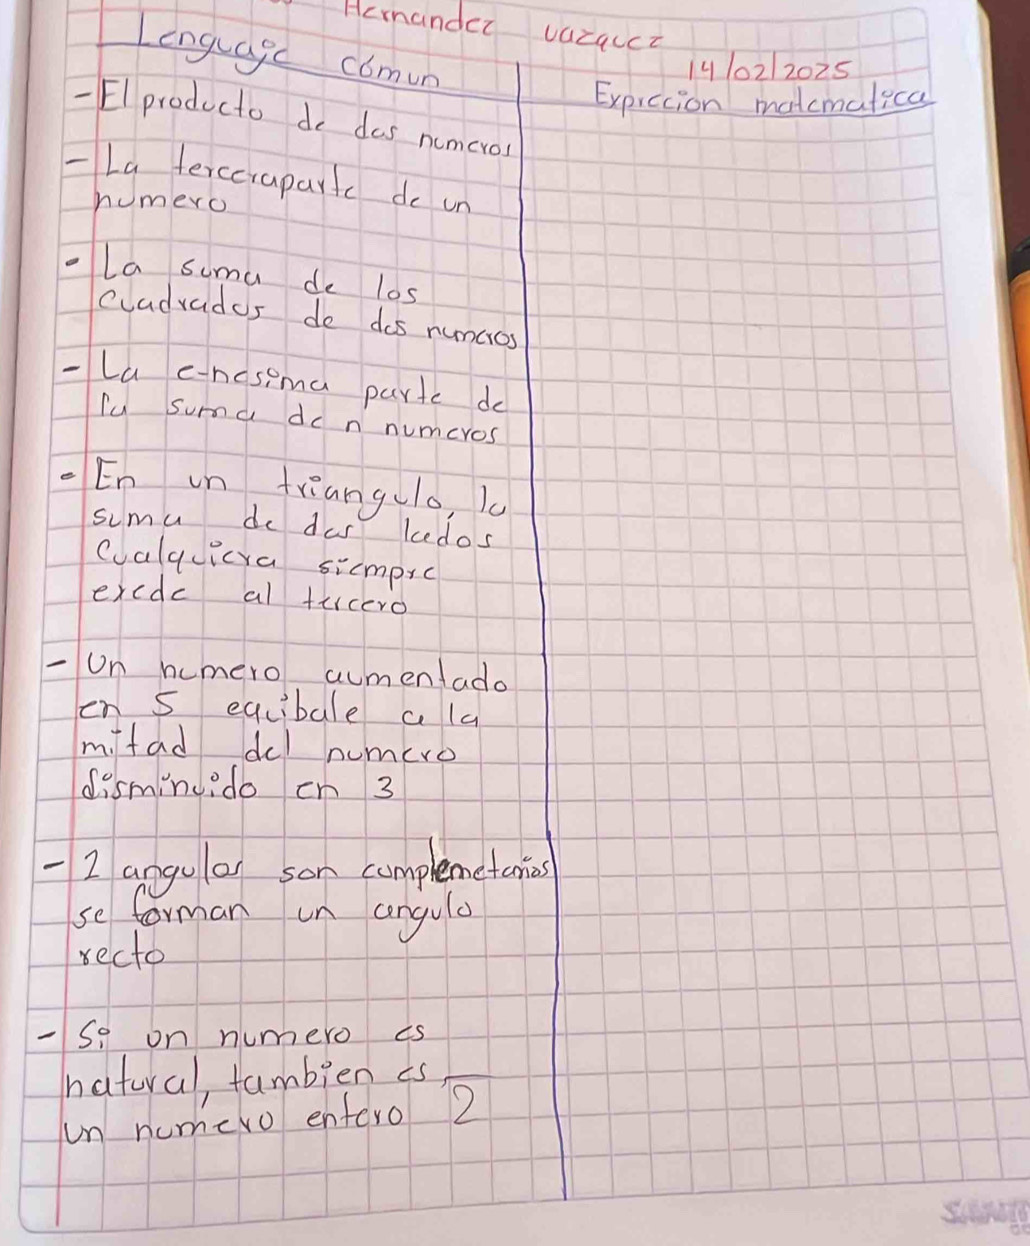 Hernandez vazquez
14/02/2025
Lenguaje cómun
Expreccion matematica
- El producto de dos numeros
- La terceraparte de un
numero
- La suma de los
cuadrados de dos numeros
- La e-nesima parte de
la suma de n numeros
- En un triangulo, la
suma de dos lados
cualquiera siempre
exede al tercero
- Un numero aumentado
en 5 equibale a la
mitad del numero
disminuido en 3
- 2 angulos son complemetarios
se forman un angulo
recto
- Si un numero es
natural, tambien es
un numero entero 2